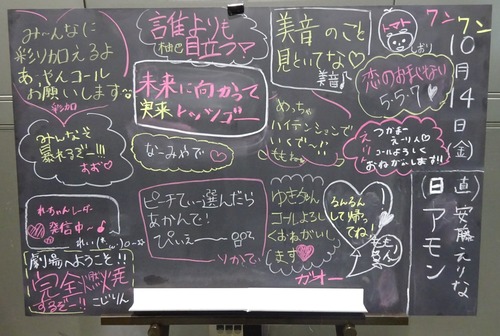 みーんなに
彩り加えるよ
あ,やんコール
お願いします
彩加
誰よりも
柚巴 目立つ
美音のこと
見といてな♡
美音♪
トマト
しおり
ワン
ワン
10月14日(金)
恋のおまじない
5:5:7
未来に向かって
実来 トッツゴー
めっちゃ
ハイテンションで
いくで〜!!
つかまえ〜りん♡
コールよろしく
おねがいします!!
みんなそ
暴れるぞー!!!
すず♡
なーみやで♡
れーちゃんレーダー
発信中〜♪
れい
ピーチてぃー選んだら
あかんで!
ぴぃえーーん
りかてぃ
ゆきちゃん
コールよろし
くおねがいし
ます
ガオー
るんるん
して帰って
ね!
劇場へようこそ!!
完全燃焼
するぞー!!
こじりん
(直)安藤えりな
(日)アモン